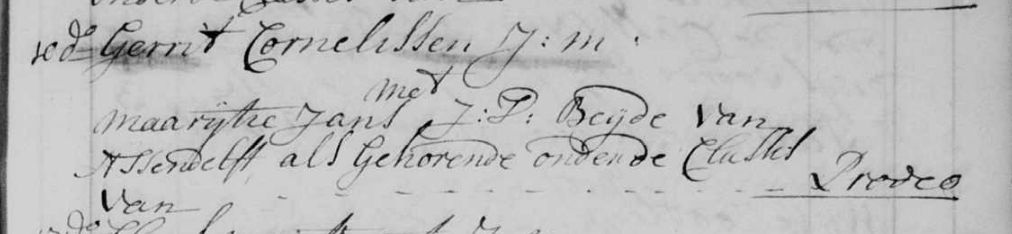 Gerrit Cornelissen J: m:
met
Maarijtie Jans J: D: Beyde van
Assendelft, als gehorende onder de Classes
van - - - - - - - - Prodeo